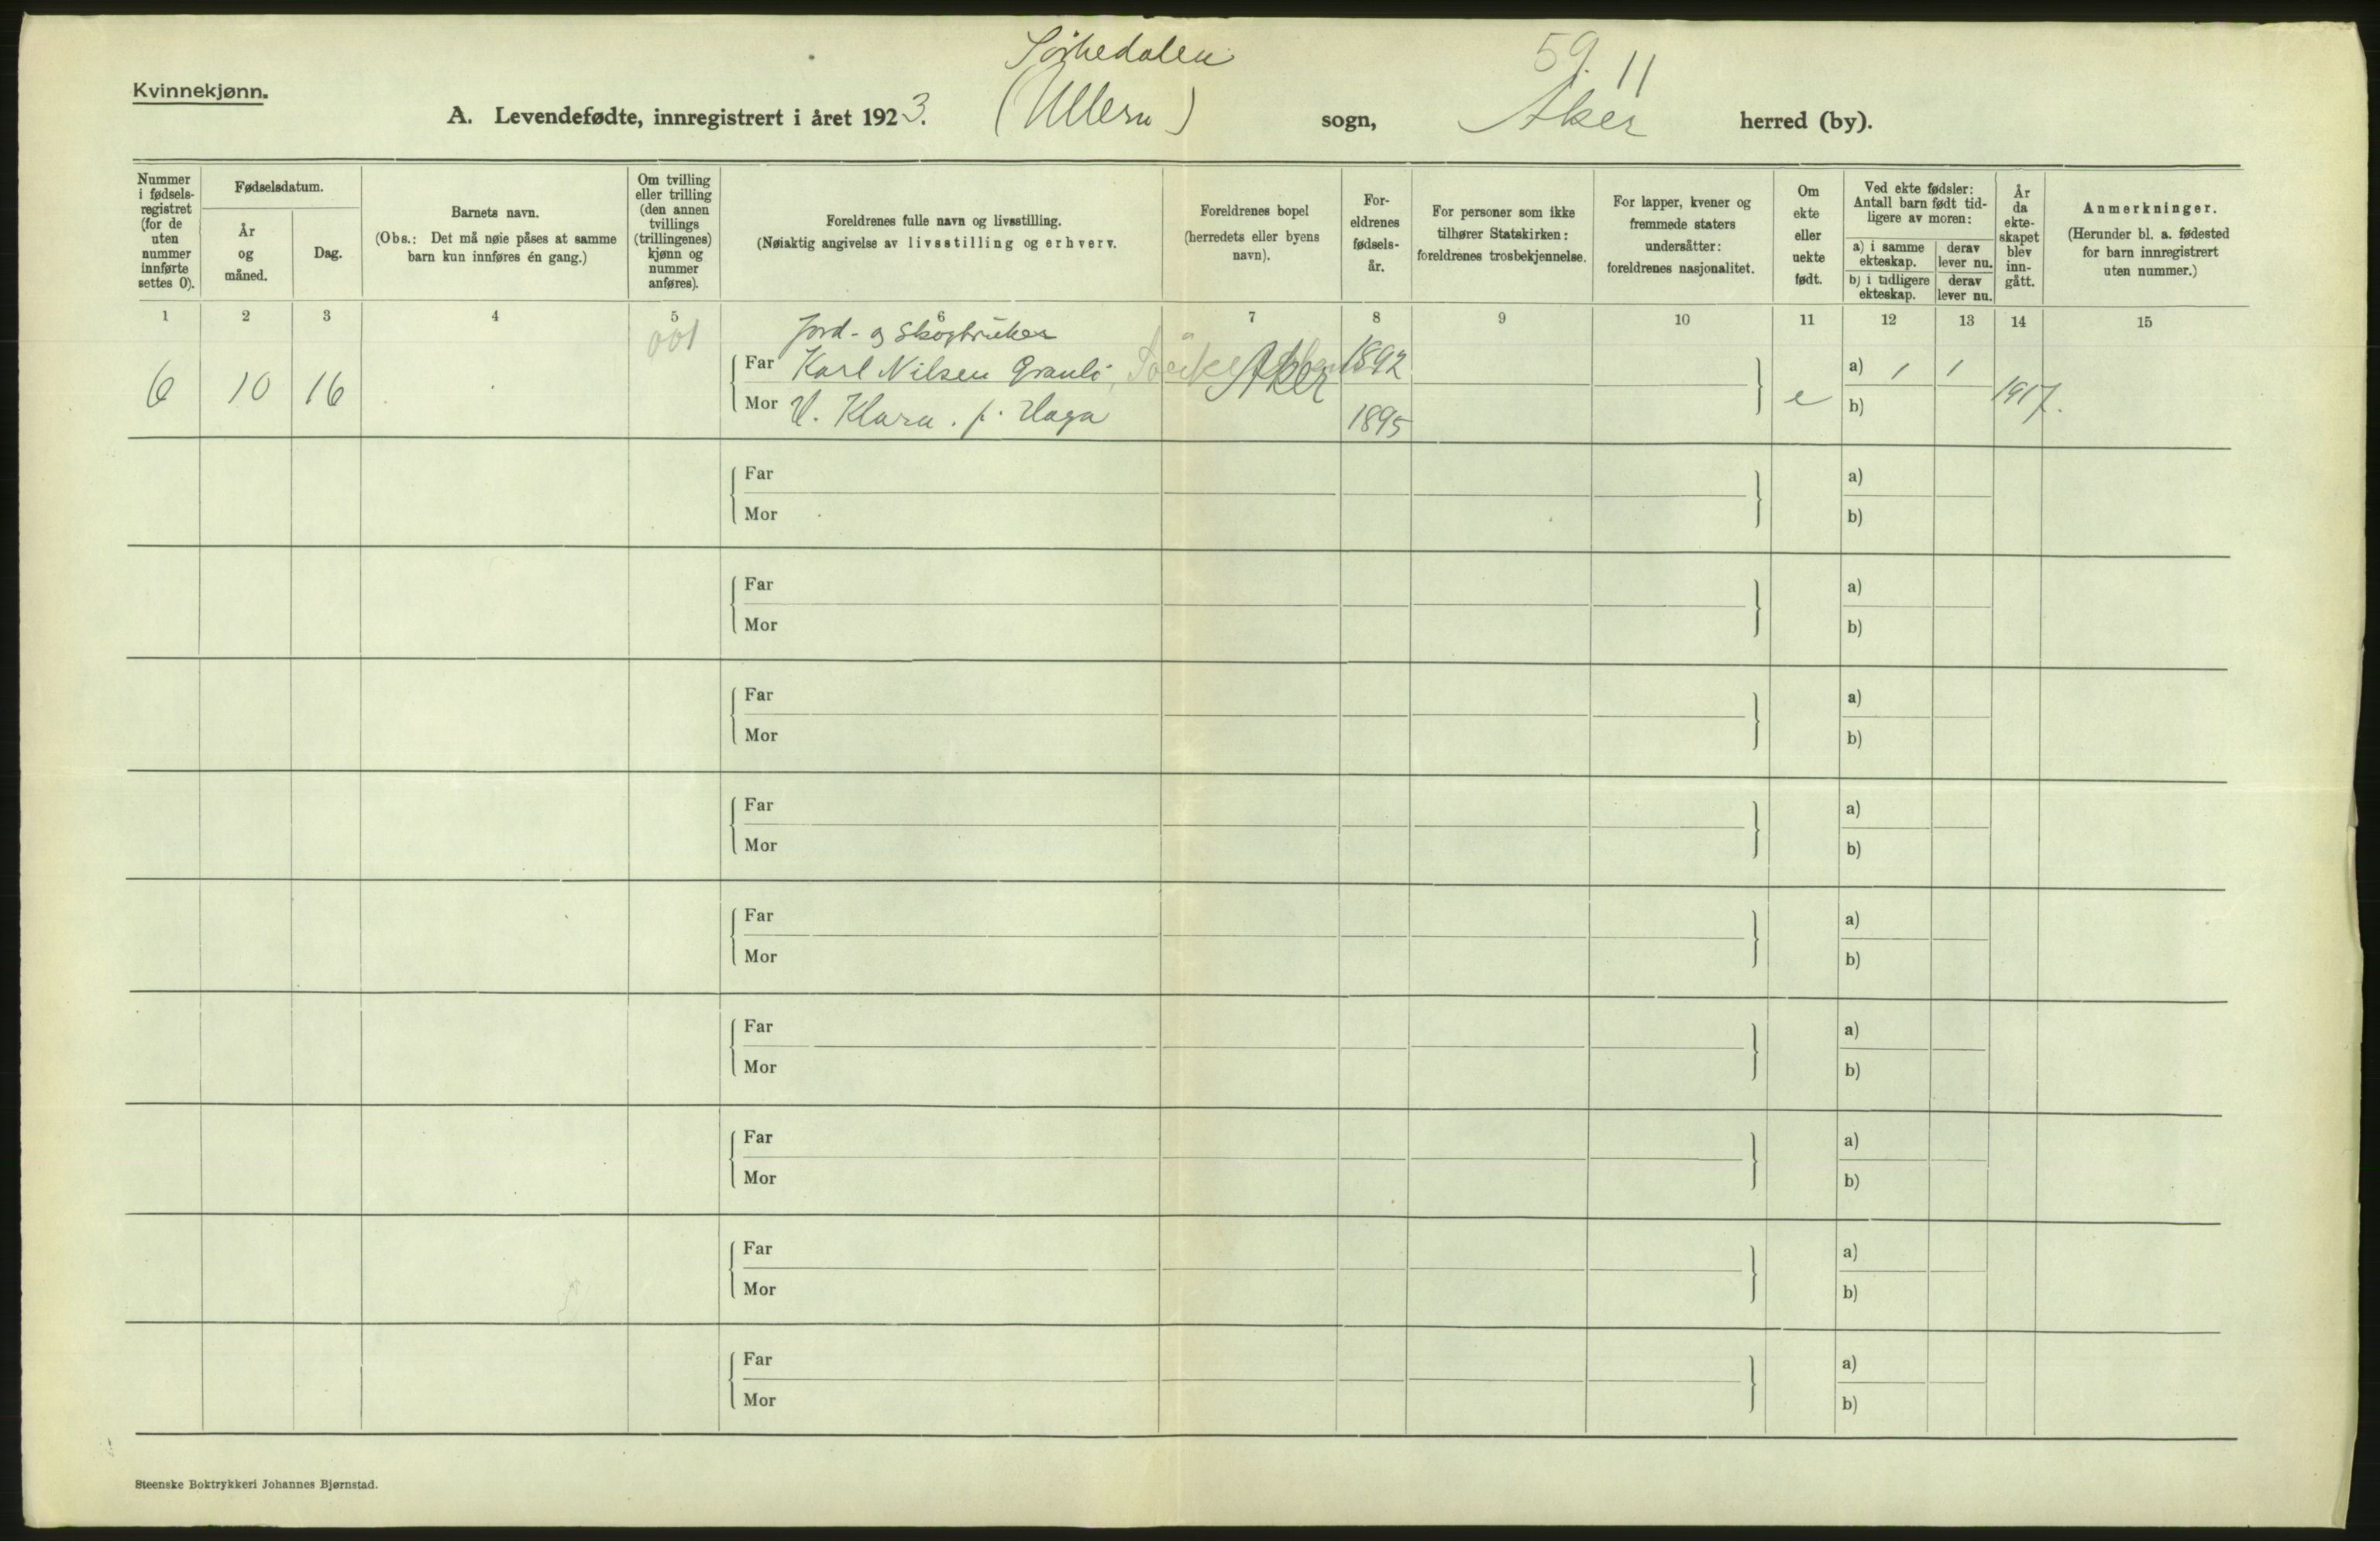 Sørkedalen
59. 11
Kvinnekjønn.
A. Levendefødte, innregistrert i året 1923. (Ullern) sogn, Aker herred (by).
Nummer i fødsels-registret (for de uten nummer innførte settes 0).
Fødselsdatum.
År og måned.
Dag.
Barnets navn.
(Obs.: Det må nøie påses at samme barn kun innføres én gang.)
Om tvilling eller trilling (den annen tvillings (trillingenes) kjønn og nummer anføres).
Foreldrenes fulle navn og livsstilling.
(Nøiaktig angivelse av livsstilling og erhverv.
Foreldrenes bopel (herredets eller byens navn).
For-eldrenes fødsels-år.
For personer som ikke tilhører Statskirken: foreldrenes trosbekjennelse.
For lapper, kvener og fremmede staters undersåtter: foreldrenes nasjonalitet.
Om ekte eller uekte født.
Ved ekte fødsler: Antall barn født tid-ligere av moren:
a) i samme ekteskap.
derav lever nu.
b) i tidligere ekteskap.
derav lever nu.
År da ekte-skapet blev inn-gått.
Anmerkninger.
(Herunder bl. a. fødested for barn innregistrert uten nummer.)
1 2 3 4 5 6 7 8 9 10 11 12 13 14 15
001 Jord- og Skogbruker
Far Karl Nilsen Granli, Aker 1892 a) 1 1
6 10 16 e 1917.
Mor H. Klara. f. Haga 1895 b)
Far a)
Mor b)
Far a)
Mor b)
Far a)
Mor b)
Far a)
Mor b)
Far a)
Mor b)
Far a)
Mor b)
Far a)
Mor b)
Far a)
Mor b)
Far a)
Mor b)
Steenske Boktrykkeri Johannes Bjørnstad.